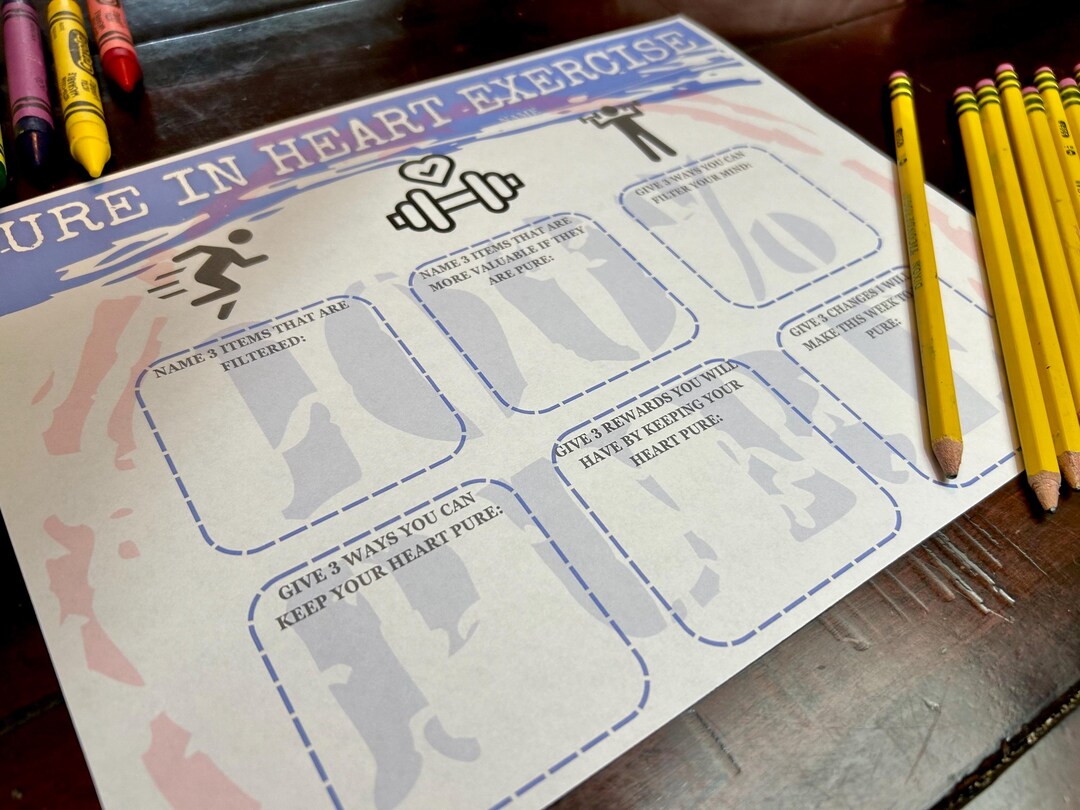 URE IN HEART EXERCISE
NAME
NAME 3 ITEMS THAT ARE
FILTERED:
NAME 3 ITEMS THAT ARE
MORE VALUABLE IF THEY
ARE PURE:
GIVE 3 WAYS YOU CAN
FILTER YOUR MIND:
GIVE 3 WAYS YOU CAN
KEEP YOUR HEART PURE:
GIVE 3 REWARDS YOU WILL
HAVE BY KEEPING YOUR
HEART PURE:
GIVE 3 CHANGES I WILL
MAKE THIS WEEK TO
PURE:
100%
PURE